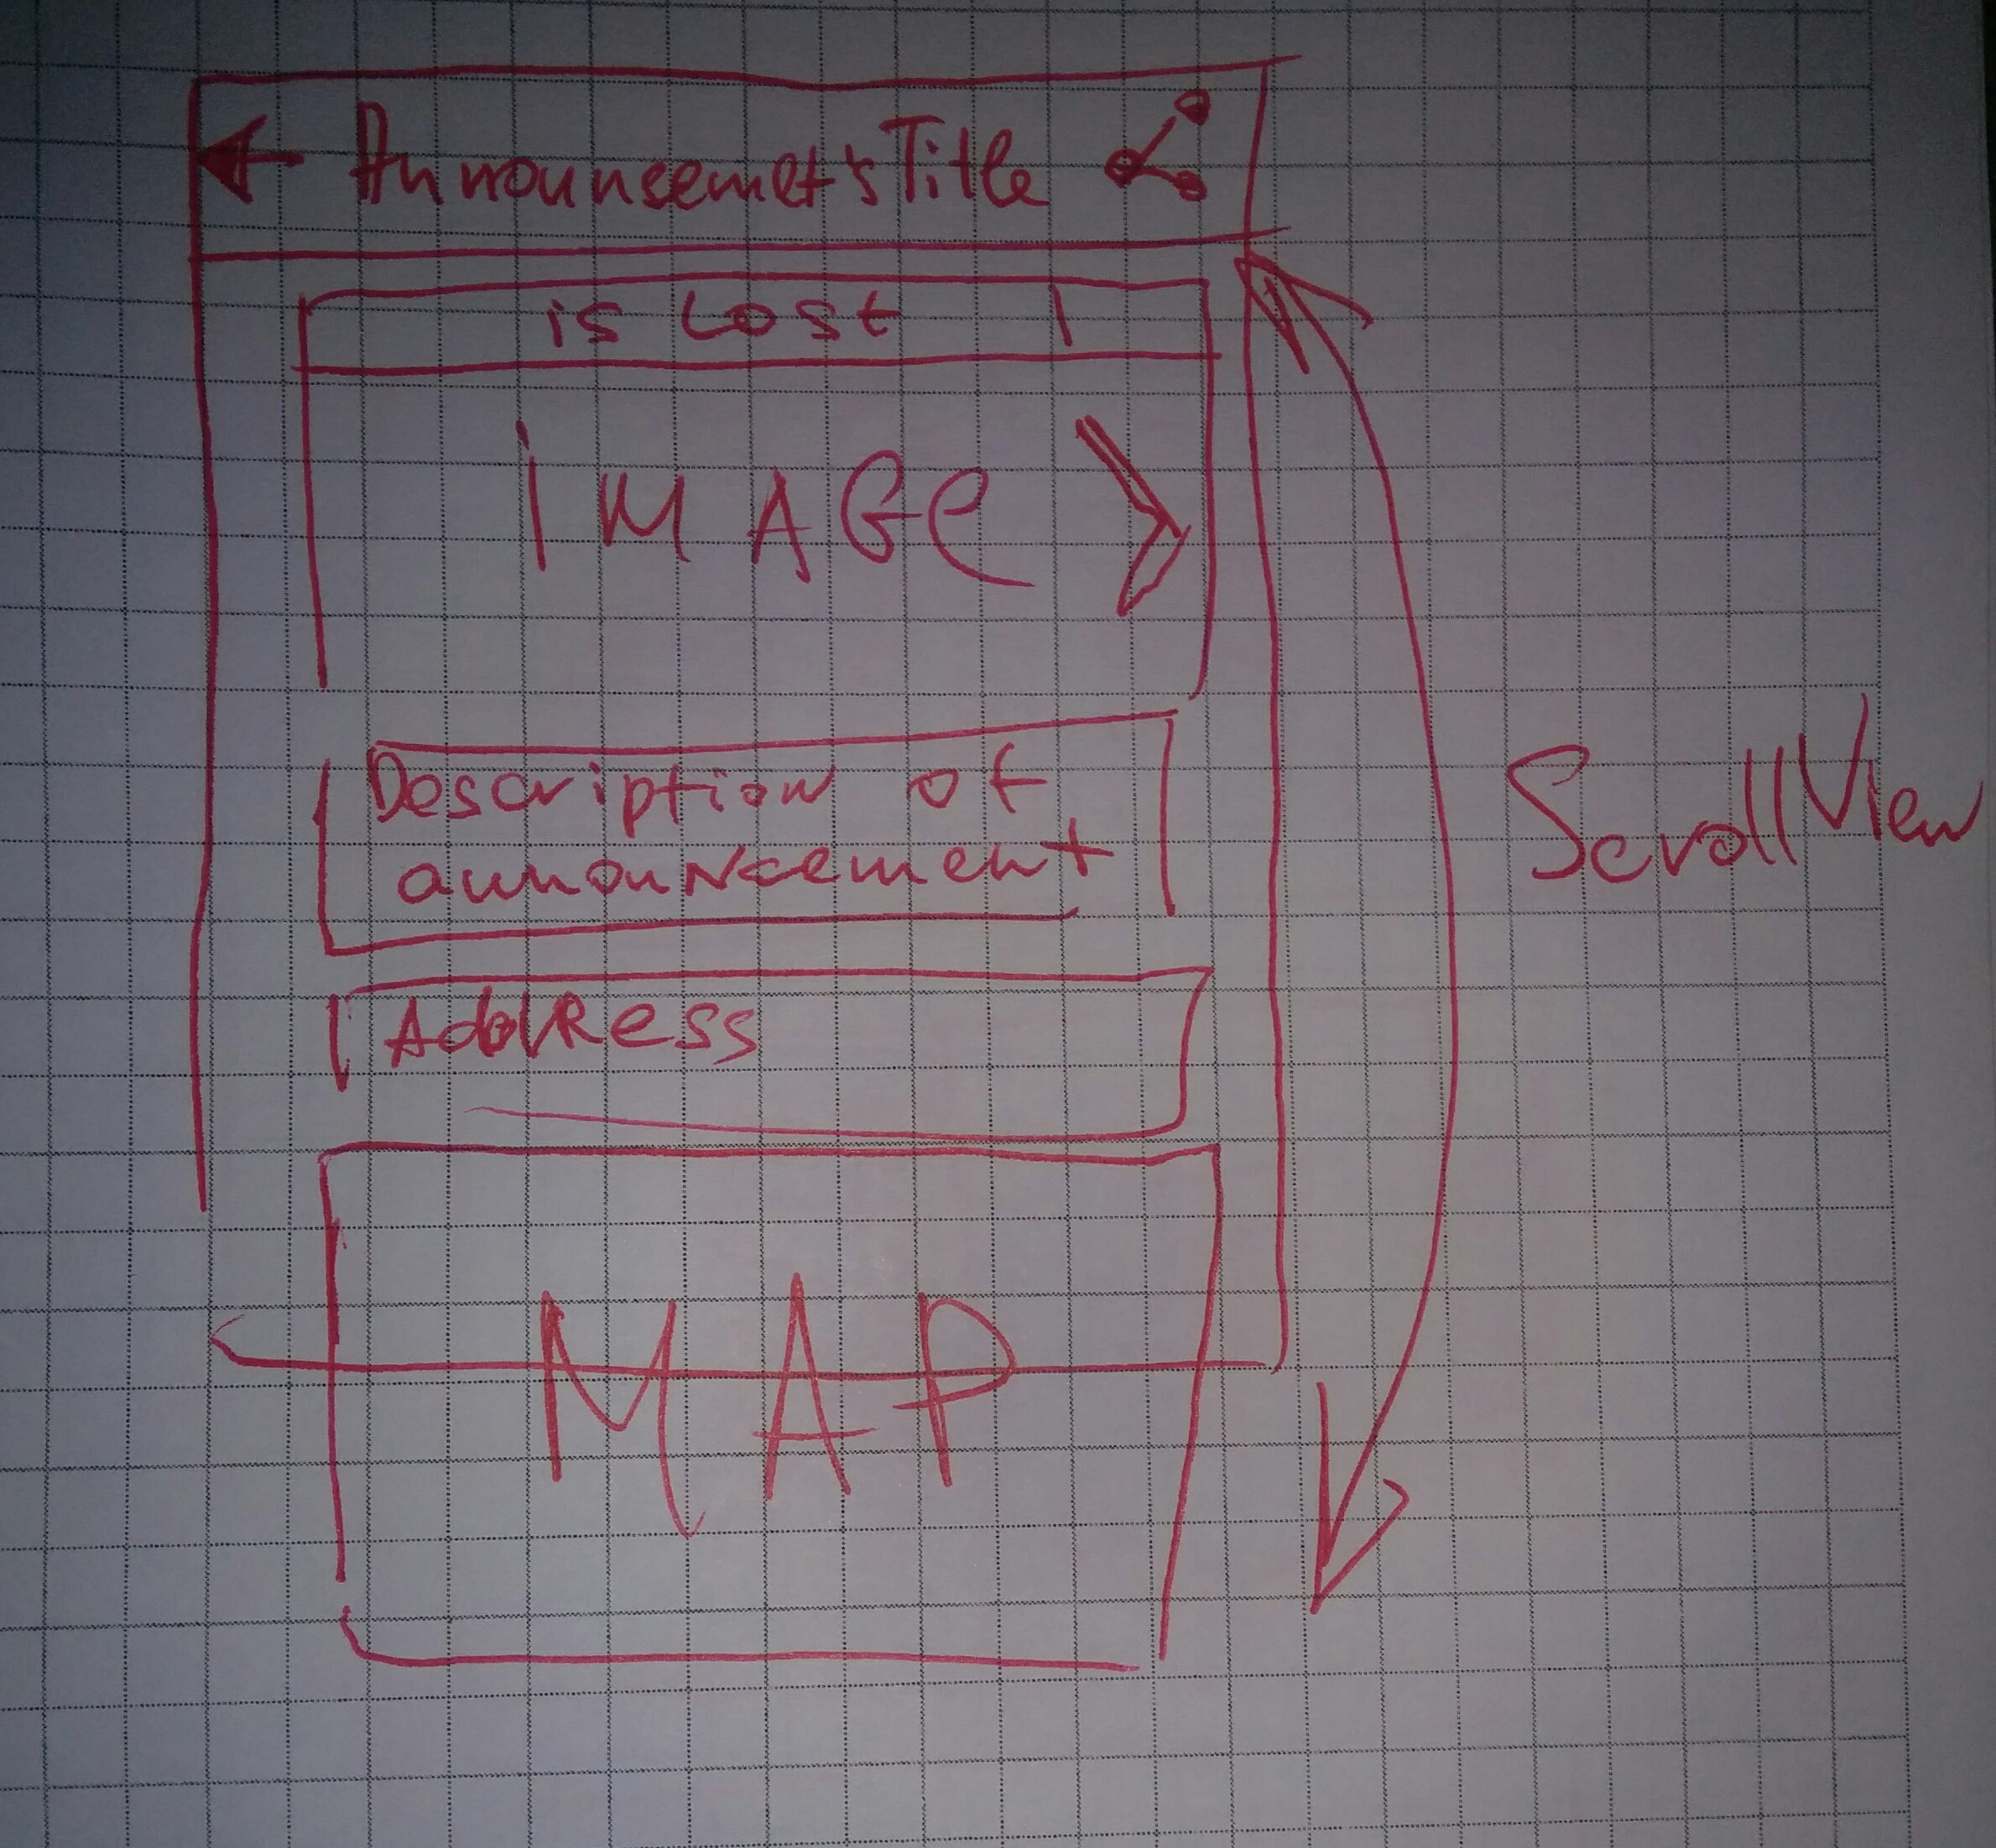 Announsemet's Title
is Lost
IMAGe
Description of
announcement
Address
MAP
ScrollView